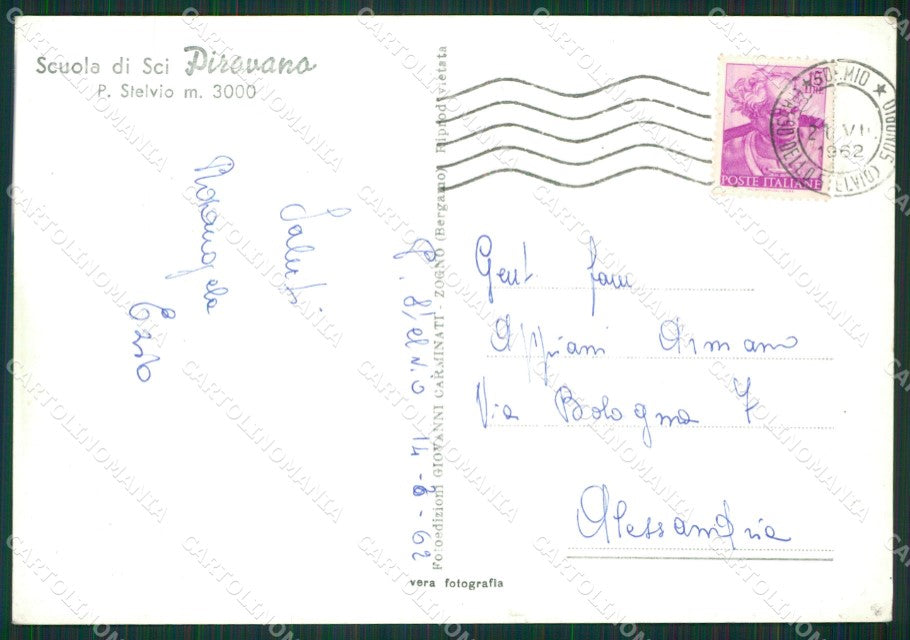 Scuola di Sci Pirovano
P. Stelvio m. 3000
Saluti
Rosangela
Ezio
P. Stelvio 14-8-62
Fotoedizioni GIOVANNI CARMINATI - ZOGNO (Bergamo) Riprod. vietata
vera fotografia
POSTE ITALIANE
1962
SONDRIO
Gent fam
Appiani Armano
Via Bologna 7
Alessandria
CARTOLINOMANIA